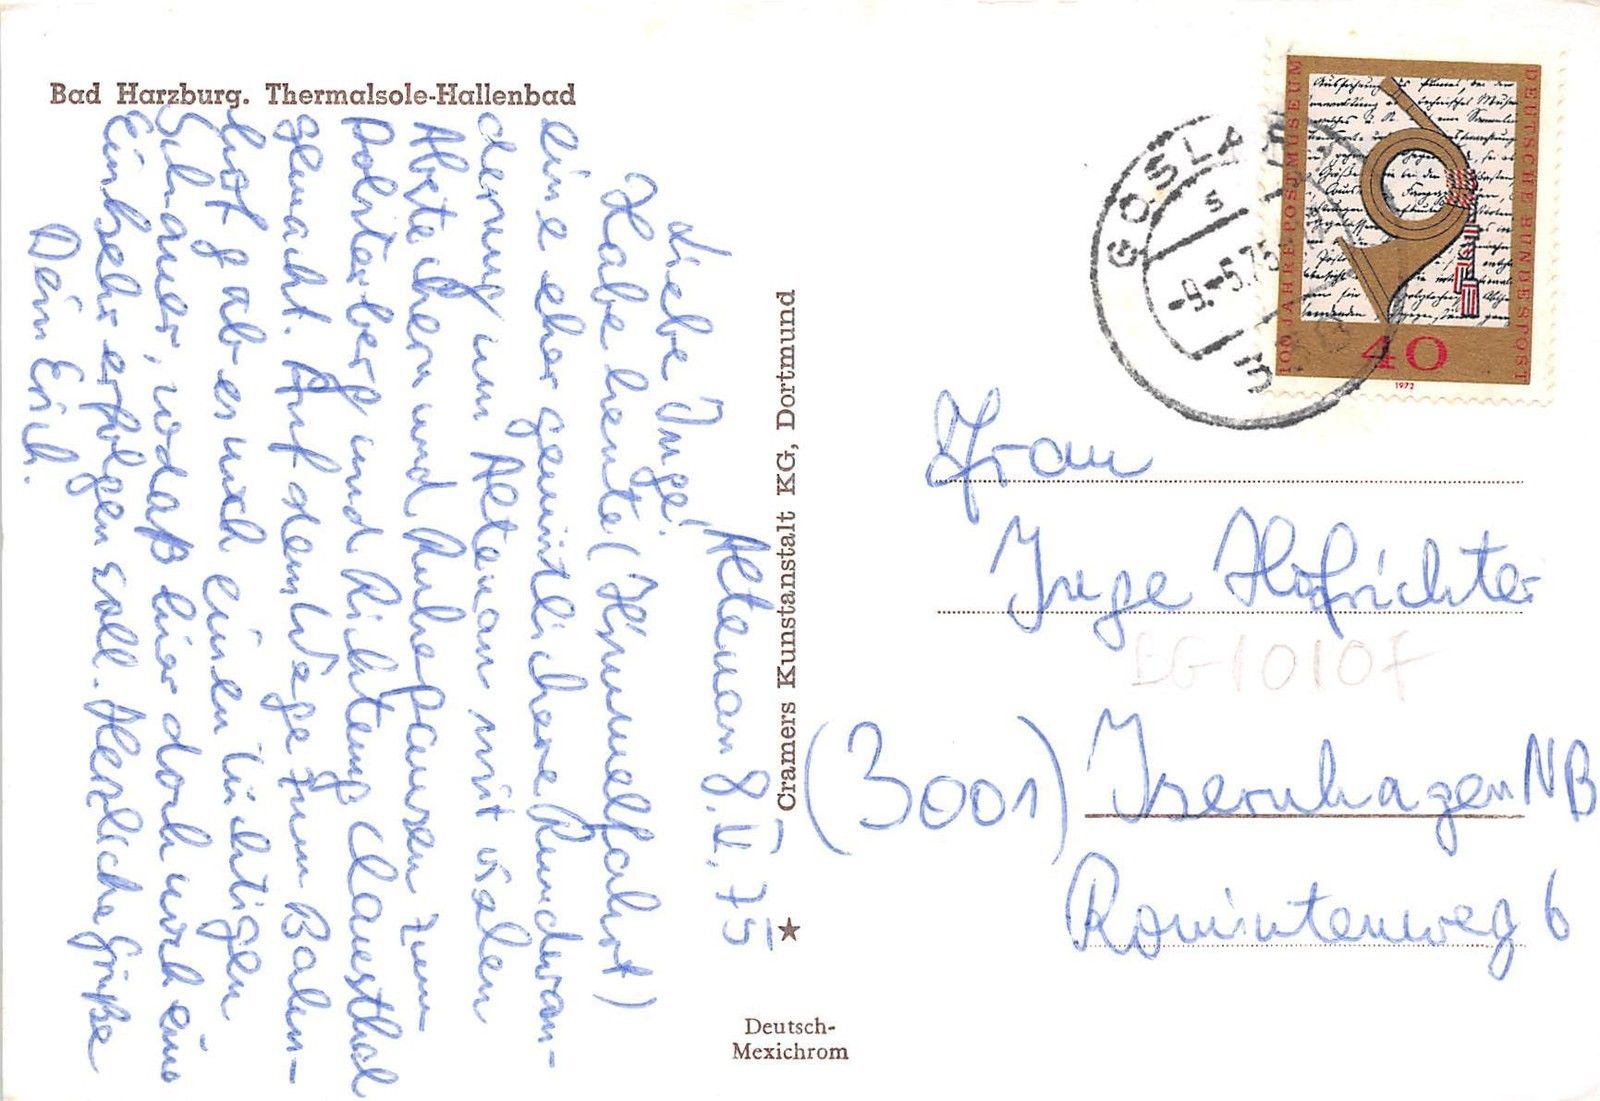 Bad Harzburg. Thermalsole-Hallenbad
Altenau 8.V.75
Liebe Inge!
Habe heute (Himmelfahrt)
eine eher gemütlichere Rundwan-
derung um Altenau mit vielen
Abstechern und Ruhepausen zum
Polsterberg und Richtung Clausthal
gemacht. Auf dem Wege zum Bahn-
hof gab es noch einen tüchtigen
Schauer, sodaß hier doch noch eine
Einkehr erfolgen soll. Herzliche Grüße
Dein Erich.
Cramers Kunstanstalt KG, Dortmund
Deutsch-
Mexichrom
GOSLAR
-9.-5.75
100 JAHRE POSTMUSEUM
DEUTSCHE BUNDESPOST
40
1972
Frau
Inge Hofrichter
BG10107
(3001) Isernhagen NB
Romintenweg 6